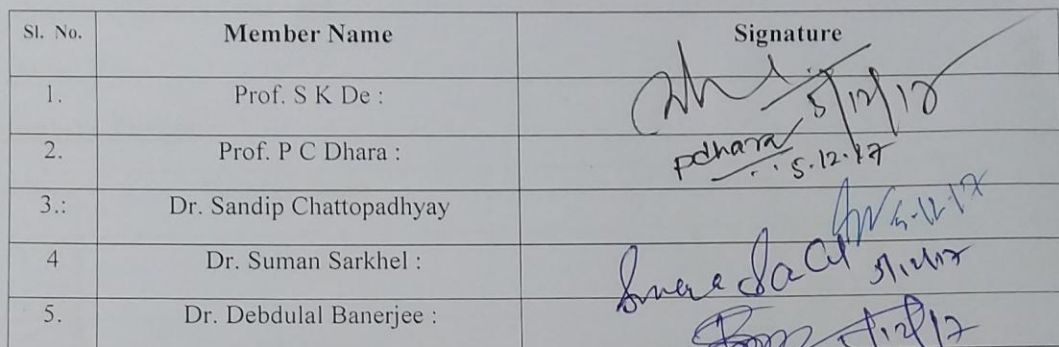 Sl. No. Member Name Signature
1. Prof. S K De : 5/12/17
2. Prof. P C Dhara : pdhara 5.12.17
3.: Dr. Sandip Chattopadhyay 5-12-17
4 Dr. Suman Sarkhel : 5/12/17
5. Dr. Debdulal Banerjee :